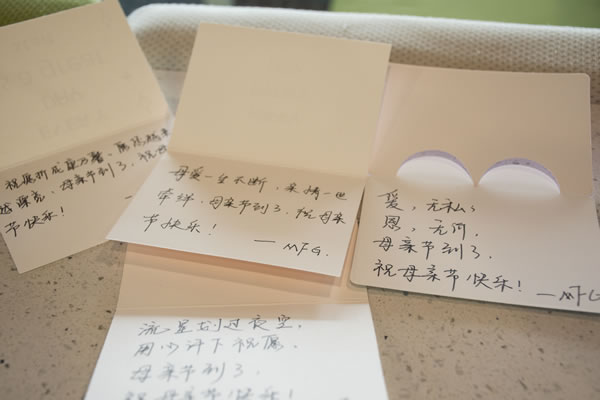 祝愿折成康乃馨，愿你越来
越漂亮。母亲节到了，祝母
节快乐！
母爱一生不断，亲情一世
牵绊。母亲节到了，祝母亲
节快乐！
— MFG.
爱，无私；
恩，无价，
母亲节到了，
祝母亲节快乐！— MFG
流星划过夜空，
用心许下祝愿，
母亲节到了，
祝母亲节快乐！